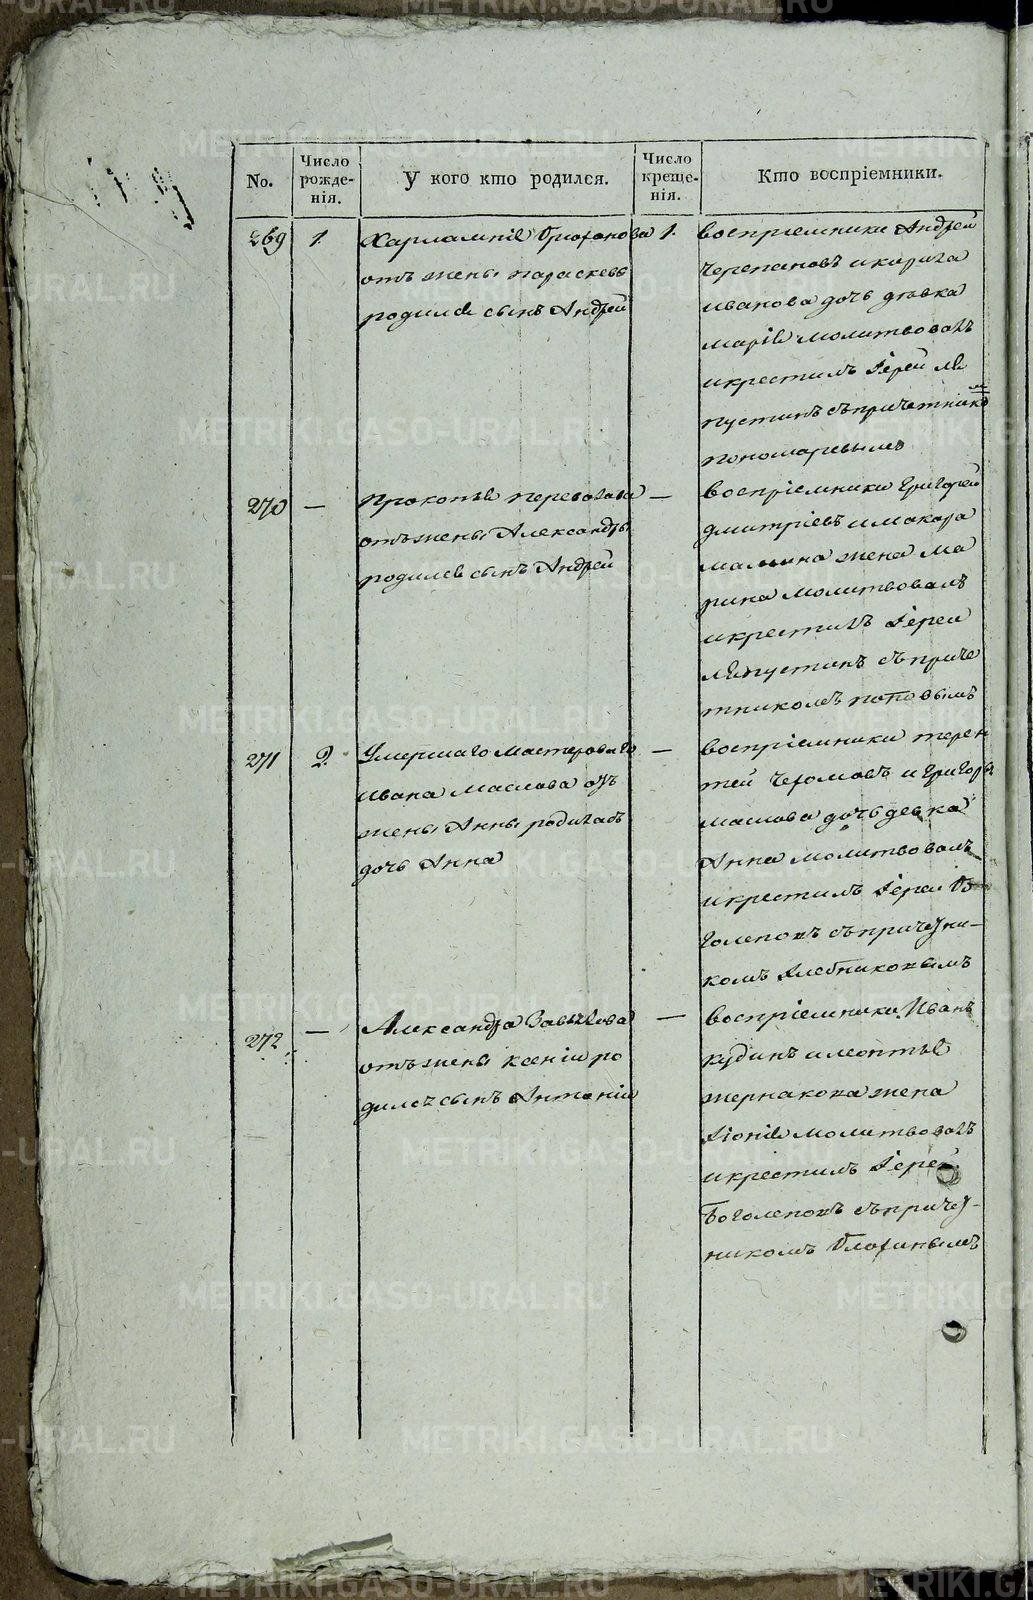 No.
Число рожденія.
У кого кто родился.
Число крещенія.
Кто воспріемники.
269
1.
Харлампія
отъ жены параскевы
родился сынъ Андрей
1.
воспріемники Андрей
Черепановъ и
иванова дочь девка
марія молитвовалъ
и крестилъ Іерей ля
пустинъ съ причетником
пономаревымъ
270
—
Прокопья
отъ жены Александры
родился сынъ Андрей
—
воспріемники Григорей
дмитріевъ и макара
мамина жена ма
рина молитвовалъ
и крестилъ Іереи
ляпустинъ съ приче
тникомъ поповымъ
271
2.
Умершаго мастероваго
Ивана маслова отъ
жены Анны родилась
дочь Анна
—
воспріемники терен
тей и Григорья
маслова дочь девка
Анна молитвовалъ
и крестилъ Іереи Бо
голеповъ съ причетни-
комъ Хлебниковымъ
272
—
Александра
отъ жены ксеніи ро
дился сынъ Антоній
—
воспріемники Иванъ
кудинъ и леонтья
жернакова жена
молитвовалъ
и крестилъ Іерей
Боголеповъ съ причет-
никомъ
METRIKI.GASO-URAL.RU